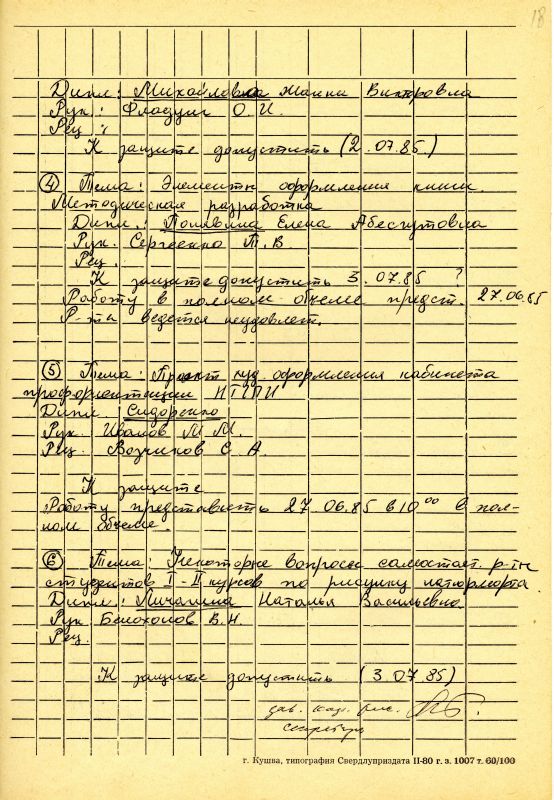 18
Дипл.: Михайловна Жанна Викторовна
Рук.: О. И.
Рец.:
К защите допустить (2.07.85.)
④ Тема: Элементы оформления книги.
Методическая разработка
Дипл.: Елена
Рук. Сергеенко Т. В
Рец.
К защите допустить 3.07.85 ?
Работу в полном объеме предст. 27.06.85
Р-та ведется неудовлет.
⑤ Тема: Проект худ оформления кабинета
профориентации НТГПИ
Дипл. Сидоренко
Рук. Иванов М М.
Рец. Возчиков С А.
К защите
Работу представить 27.06.85 в 10⁰⁰ в пол-
ном объеме.
⑥ Тема: Некоторые вопросы самостоят. р-ты
студентов I-II курсов по рисунку натюрморта
Дипл.: Наталья Васильевна
Рук. Белохонов В.Н.
Рец.
К защите допустить (3.07.85)
зав. каф. рис.
секретарь
г. Кушва, типография Свердлуприздата II-80 г. з. 1007 т. 60/100